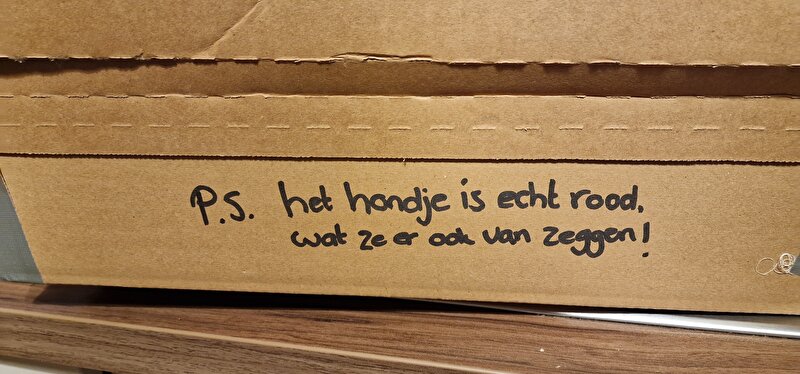 P.S. het hondje is echt rood,
wat ze er ook van zeggen!